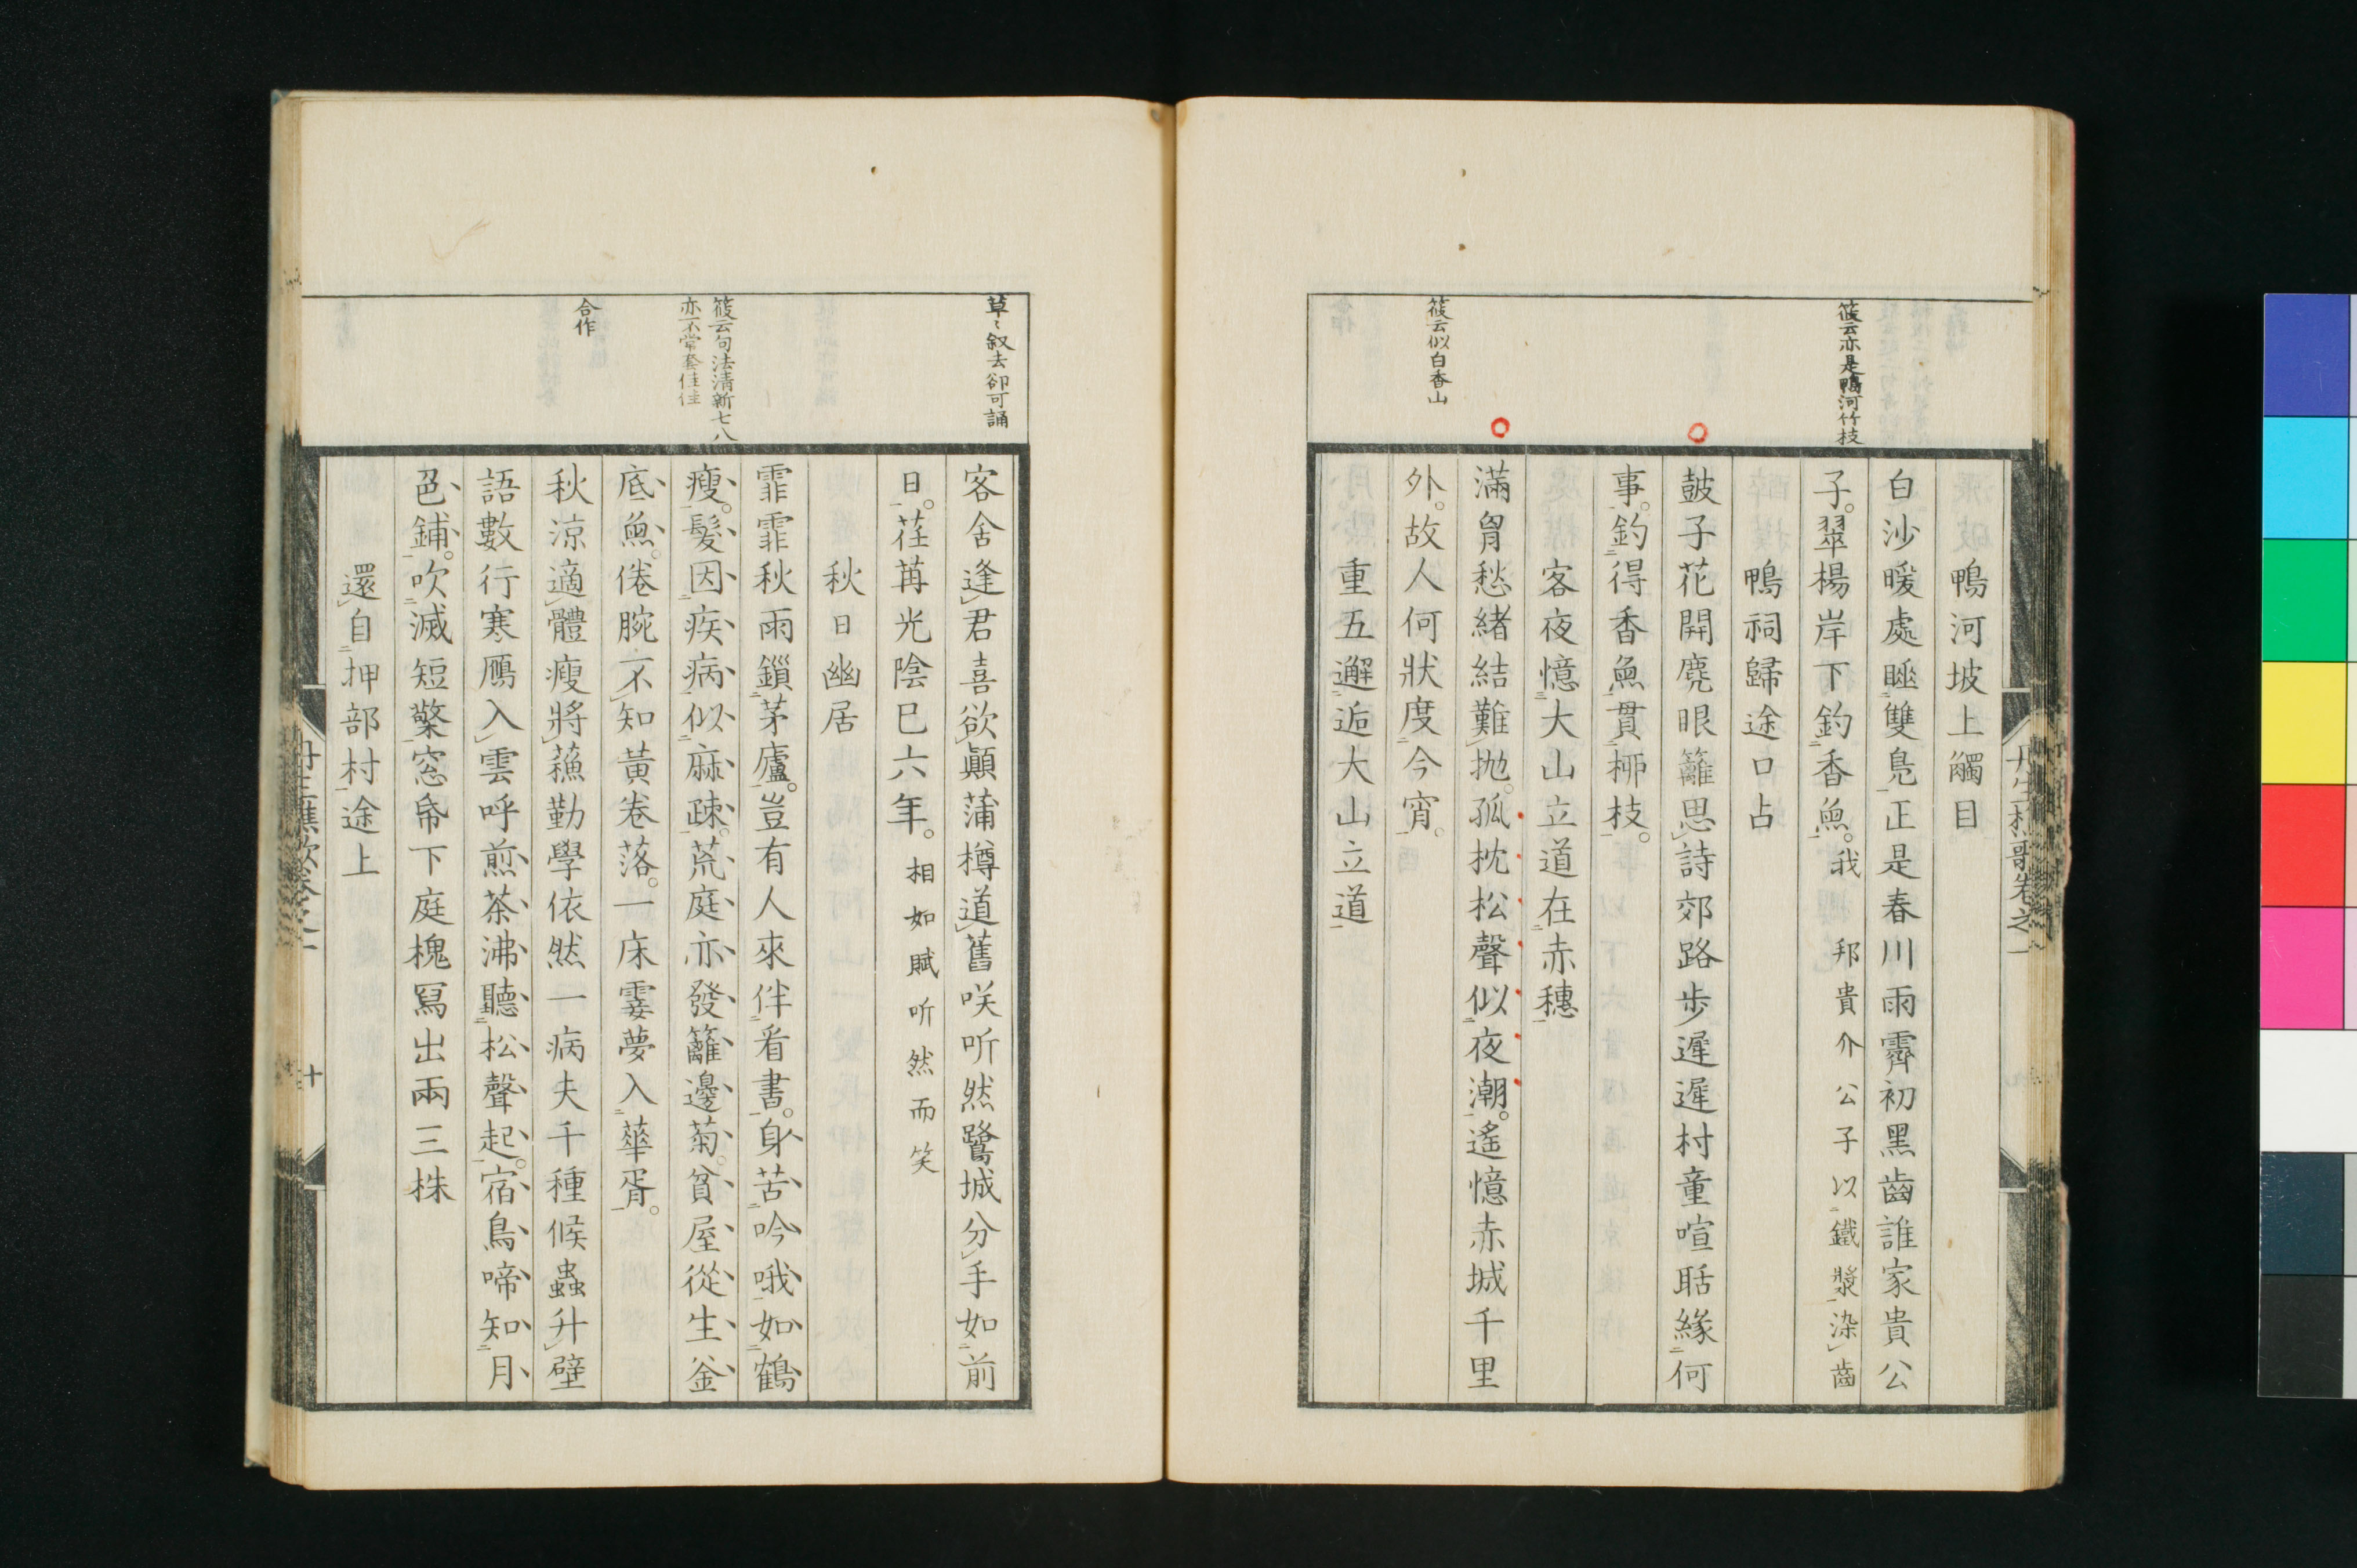 筱云亦是鴨河竹枝
筱云似白香山
鴨河坡上觸目
白沙暖處睡雙鳧正是春川雨霽初黑齒誰家貴公
子翠楊岸下釣香魚我邦貴介公子以鐵漿染齒
鴨祠歸途口占
鼓子花開麂眼籬思詩郊路步遲遲村童喧聒緣何
事釣得香魚貫柳枝
客夜憶大山立道在赤穗
滿胷愁緒結難拋孤枕松聲似夜潮遙憶赤城千里
外故人何狀度今宵
重五邂逅大山立道
丹生樵歌卷之一
草〻叙去卻可誦
筱云句法清新七八
亦不常套佳佳
合作
客舍逢君喜欲顚蒲樽道舊咲听然鷺城分手如前
日荏苒光陰已六年相如賦听然而笑
秋日幽居
霏霏秋雨鎻茅廬豈有人來伴看書身苦吟哦如鶴
瘦髮因疾病似麻疎荒庭亦發籬邊菊貧屋從生釜
底魚倦腕不知黃卷落一床霎夢入華胥
秋涼適體瘦將蘓勤學依然一病夫千種候蟲升壁
語數行寒鴈入雲呼煎茶沸聽松聲起宿鳥啼知月
色鋪吹滅短檠窓帋下庭槐冩出兩三株
還自押部村途上
丹生樵歌卷之一
十